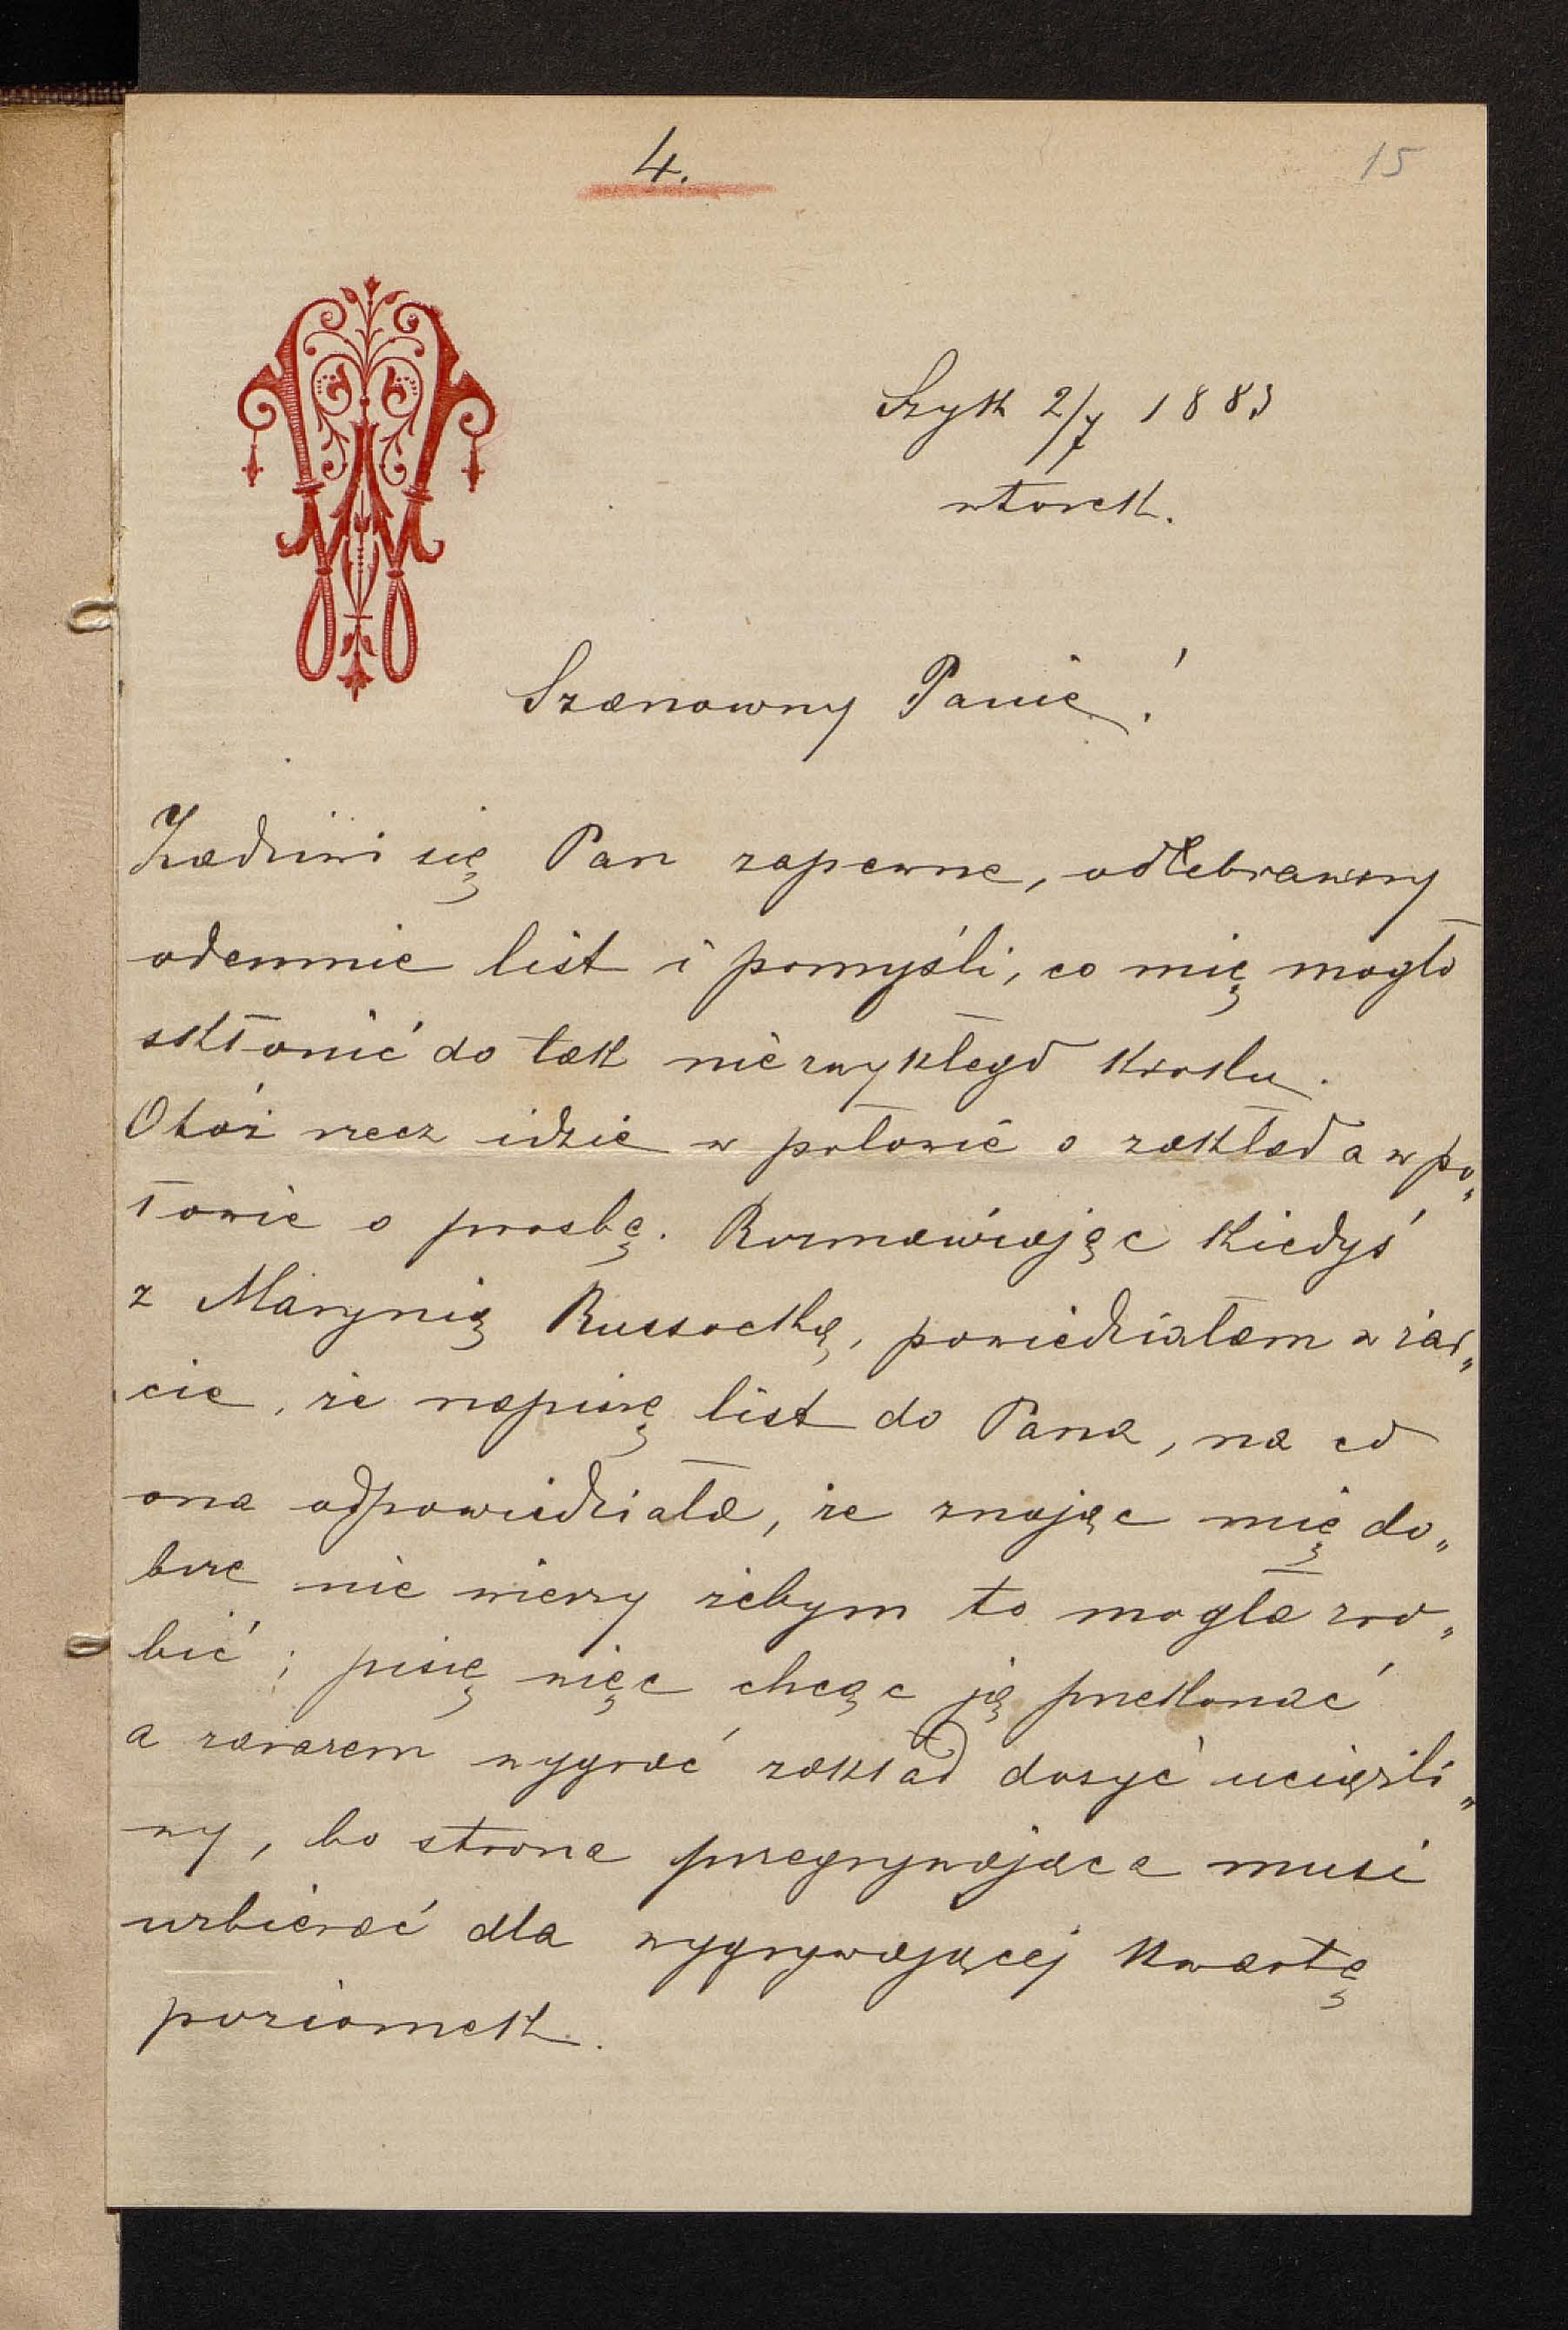 4.
15
Szyk 2/7 1883
wtorek.
Szanowny Panie!
Zadziwi się Pan zapewne, odebrawszy
odemnie list i pomyśli, co mię mogło
skłonić do tak niezwykłego kroku.
Otóż rzecz idzie w połowie o zakład a w po„
łowie o prosbę. Rozmawiając kiedyś
z Marynią Russocką, powiedziałam w żar„
cie, że napiszę list do Pana, na co
ona odpowiedziała, że znając mię do„
brze nie wierzy żebym to mogła zro„
bić; piszę więc chcąc ją przekonać
a zarazem wygrać zakład dosyć uciążli„
wy, bo strona przegrywająca musi
uzbierać dla wygrywającej kwartę
poziomek.